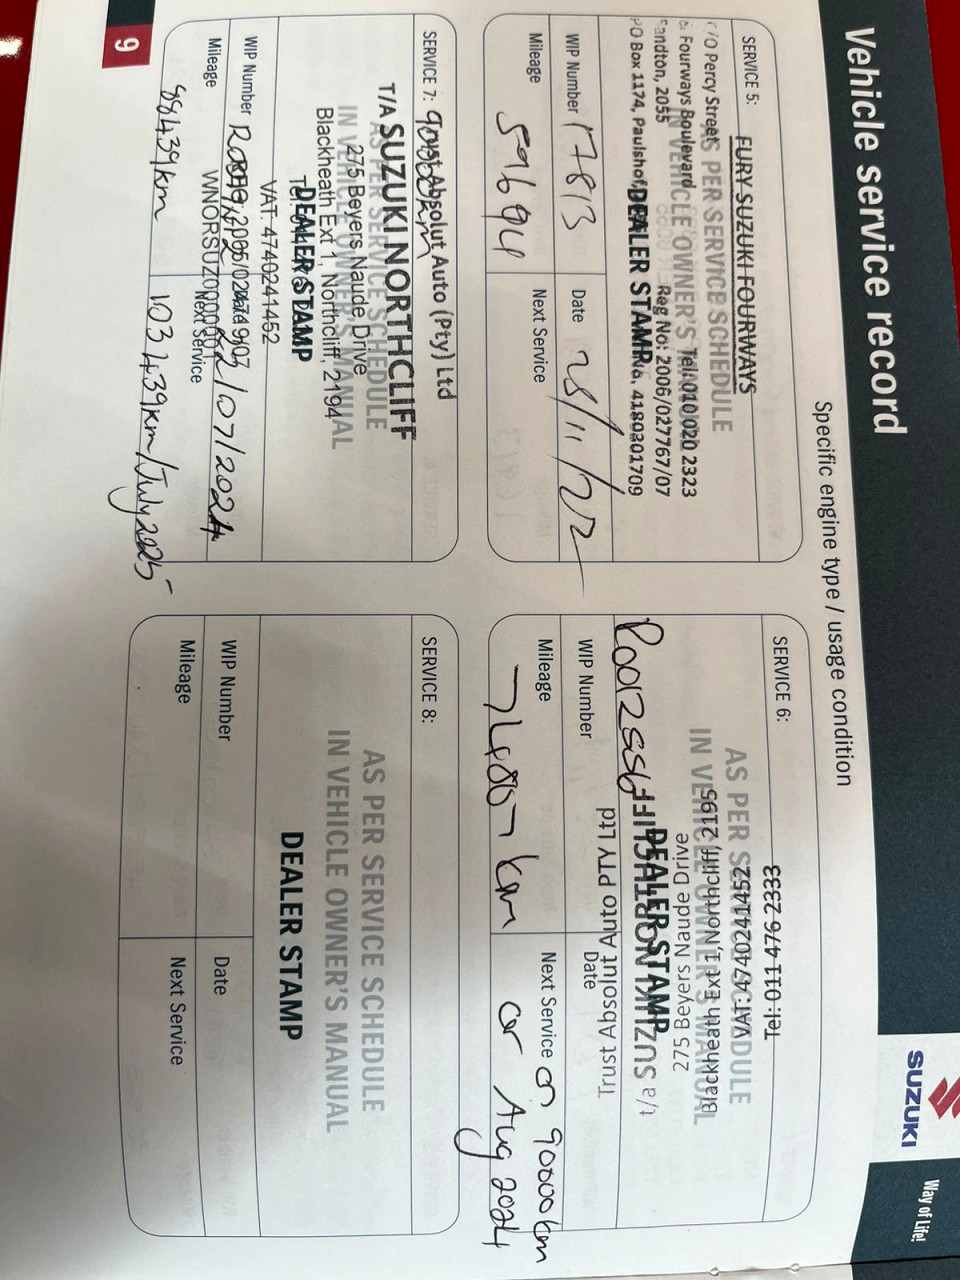 Vehicle service record
SUZUKI
Way of Life!
Specific engine type / usage condition
SERVICE 5:
FURY SUZUKI FOURWAYS
AS PER SERVICE SCHEDULE
IN VEHICLE OWNER'S MANUAL
Percy Street
Fourways Boulevard
Tel: 010 020 2323
Sandton, 2055
Reg No: 2006/027767/07
PO Box 1174, Paulshof
4180201709
DEALER STAMP
WIP Number 17813
Date 28/11/22
Mileage 59694
Next Service
SERVICE 6:
Tel: 011 476 2333
AS PER SERVICE SCHEDULE
VAT: 4740241452
IN VEHICLE OWNER'S MANUAL
Blackheath Ext 1, Northcliff, 2195
275 Beyers Naude Drive
DEALER STAMP
t/a SUZUKI NORTHCLIFF
Trust Absolut Auto PTY Ltd
WIP Number
Date
Mileage 74007 km
Next Service @ 90000 km
or Aug 2024
SERVICE 7: 90000km
Absolut Auto (Pty) Ltd
T/A SUZUKI NORTHCLIFF
AS PER SERVICE SCHEDULE
275 Beyers Naude Drive
IN VEHICLE OWNER'S MANUAL
Blackheath Ext 1, Northcliff, 2194
DEALER STAMP
VAT: 4740241452
WIP Number
Date 02/07/2024
Mileage 88439km
Next Service 103439km/July 2025
SERVICE 8:
AS PER SERVICE SCHEDULE
IN VEHICLE OWNER'S MANUAL
DEALER STAMP
WIP Number
Date
Mileage
Next Service
9